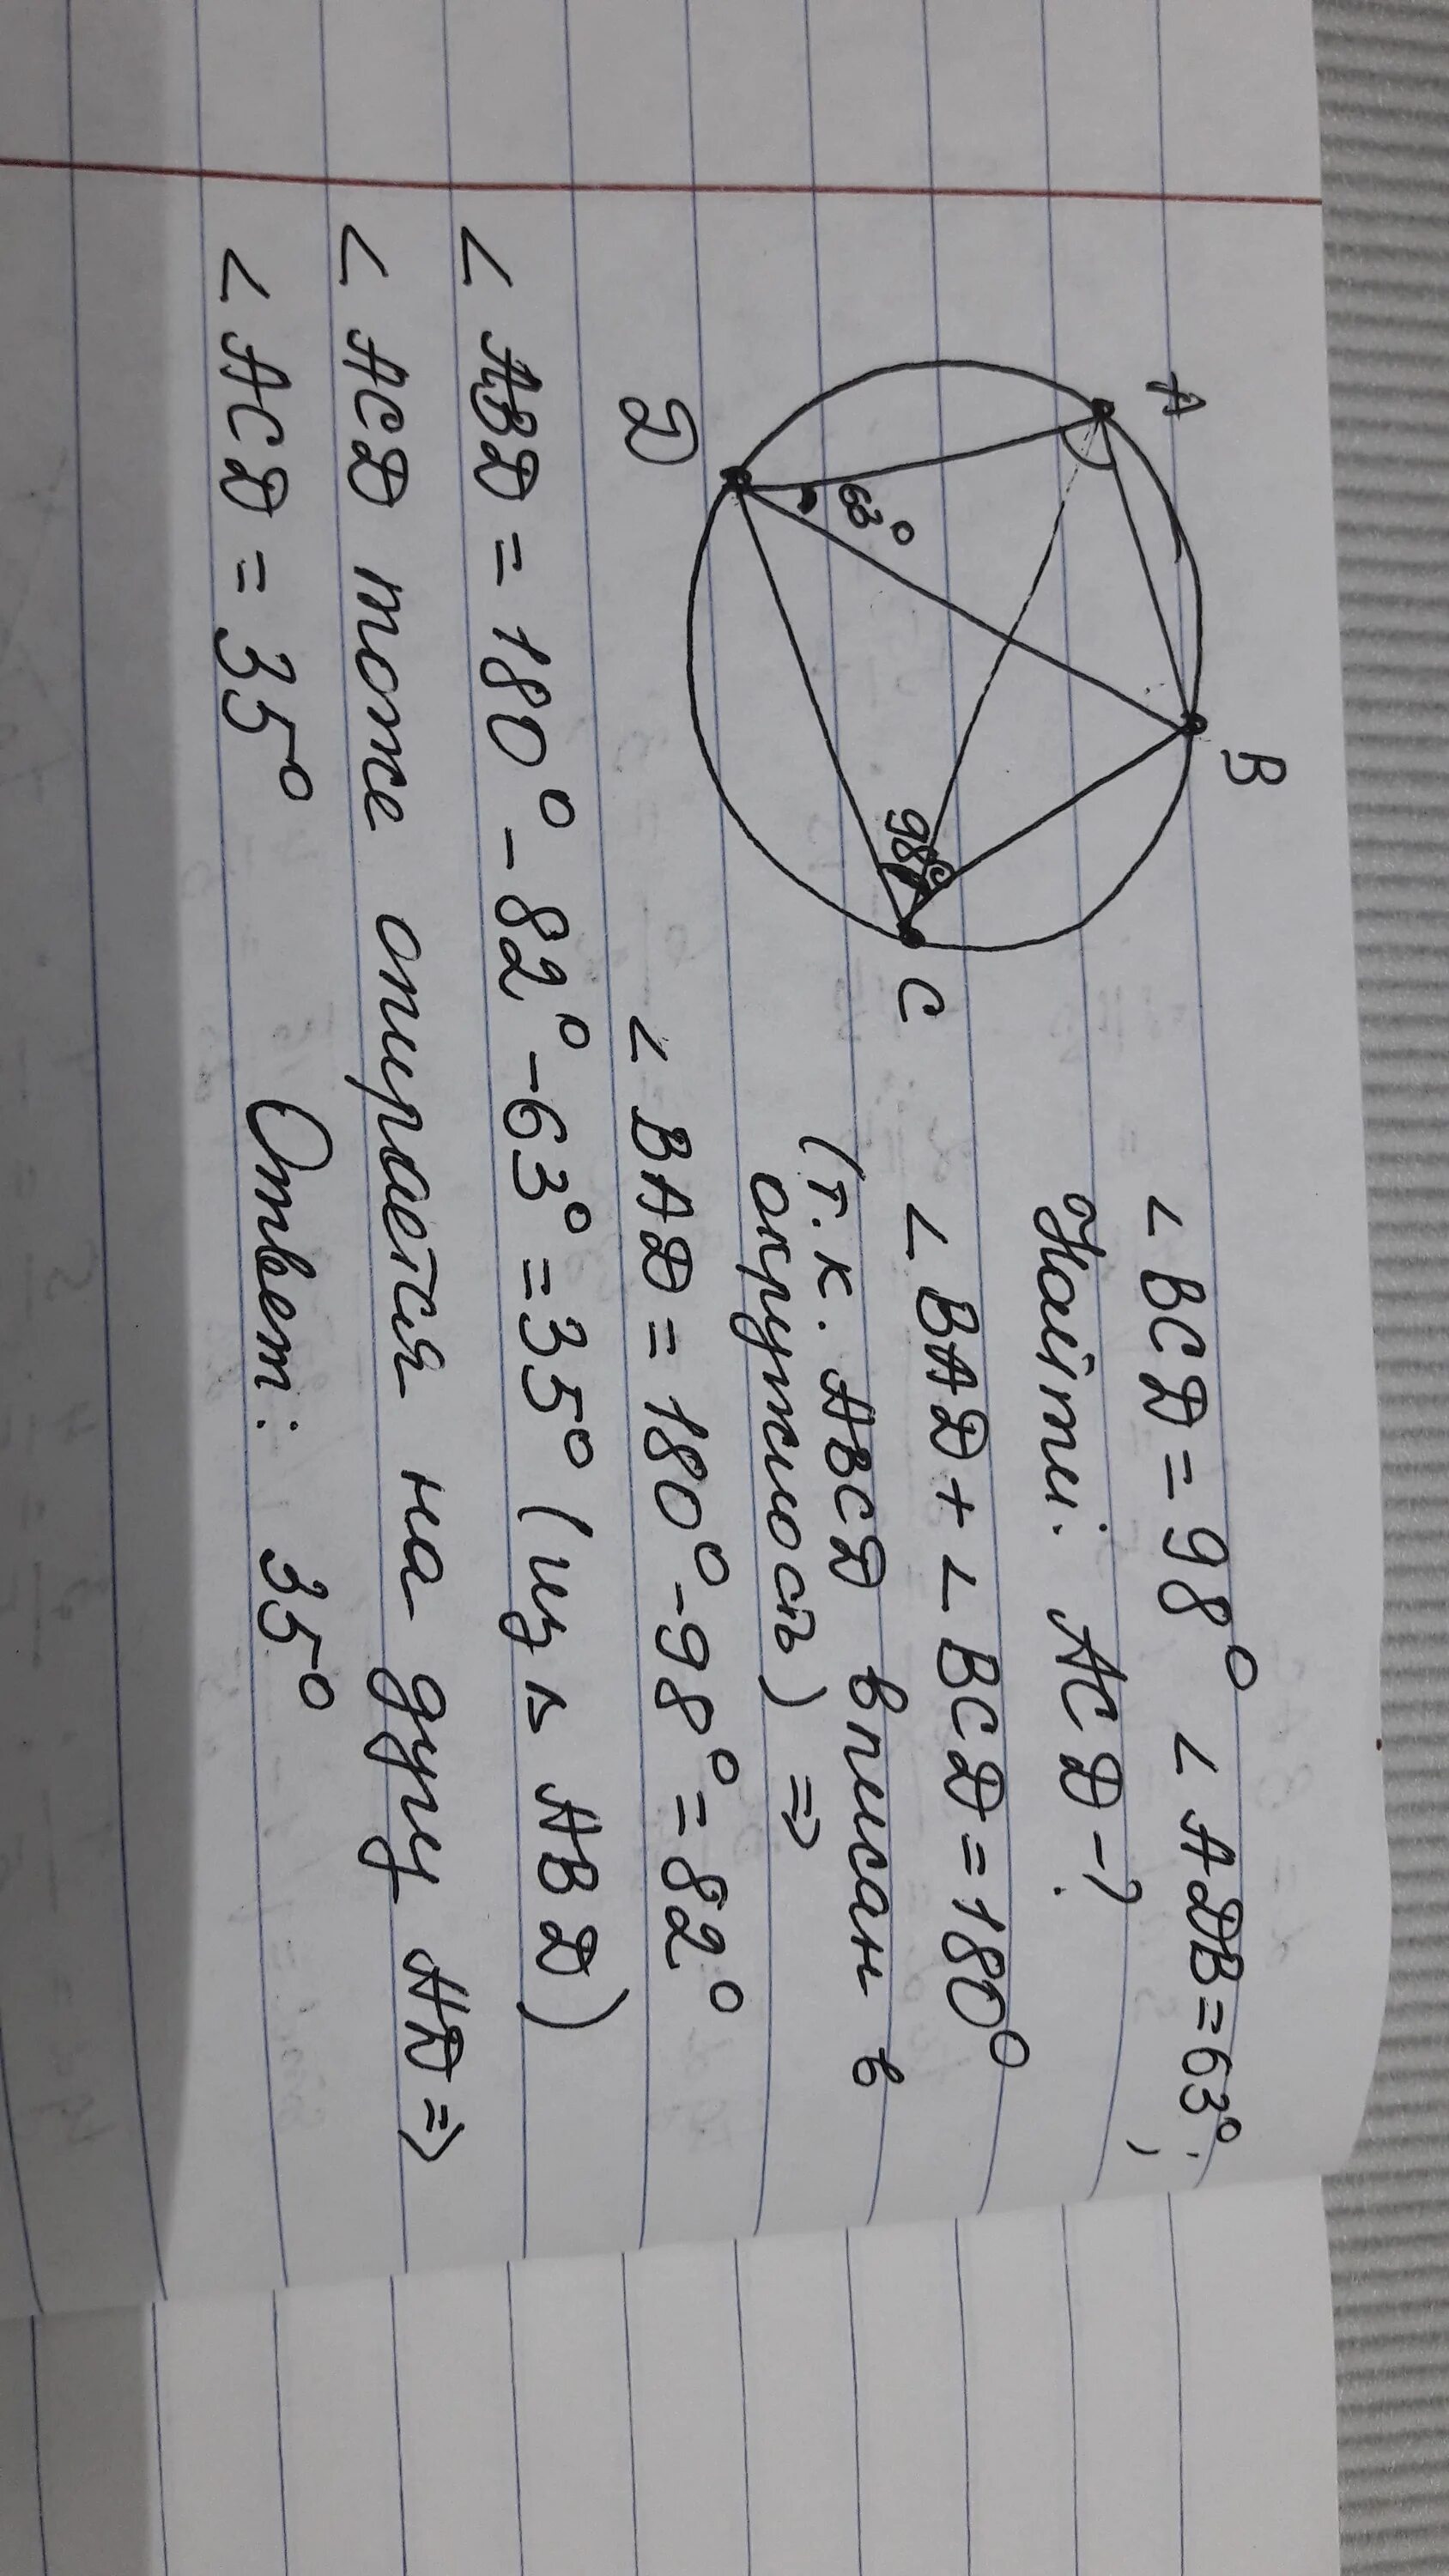 A
B
C
D
63°
98°
∠ BCD = 98° ∠ ADB = 63°;
Найти: ACD - ?
∠ BAD + ∠ BCD = 180°
(т.к. ABCD вписан в
окружность) ⇒
∠ BAD = 180° - 98° = 82°
∠ ABD = 180° - 82° - 63° = 35° (из △ ABD)
∠ ACD тоже опирается на дугу AD ⇒
∠ ACD = 35° Ответ: 35°